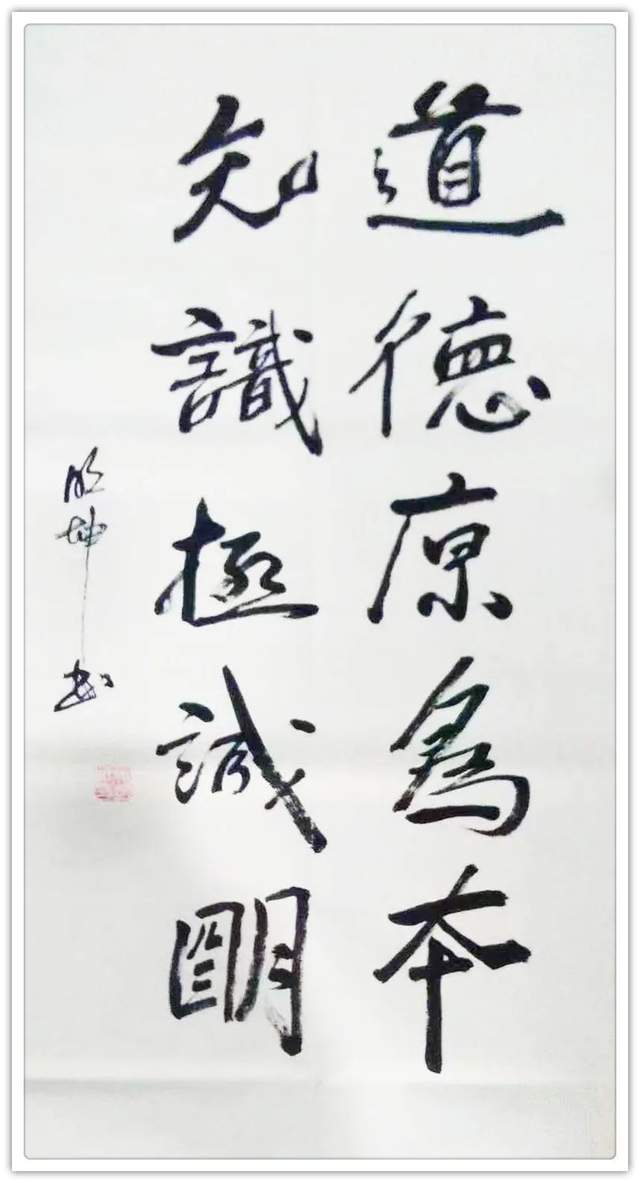 道德原為本
知識極誠明
明坤书